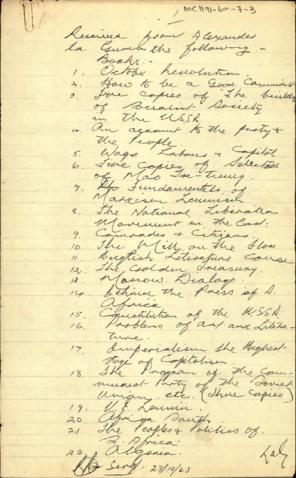 MCH91-60-7-3
Received from Alexander
la Guma the following :-
Books :-
1. October Revolution
2. How to be a Good Communist
3. Five copies of The building
of Socialist Society
in the USSR
4. An account to the party &
the People
5. Wage Labour & Capital
6. Five Copies of Selected
of Mao Tse-tung
7. Fundamentals of
Marxism Leninism
8. The National Liberation
Movement in the East.
9. Comrades & Citizens
10. The Mill on the Floss
11. English Literature Course
12. The Golden Treasury.
13. Moscow Dialogs.
14. Behind the Press of S.
Africa
15. Constitution of the USSR
16. Problems of Art and Litera-
ture.
17. Imperialism the Highest
Stage of Capitalism
18. The Program of the Com-
munist Party of the Soviet
Union, etc. (Three Copies)
19. V.I. Lenin.
20. Africa South
21. The Peoples & Politics of
S. Africa
22. Algeria.
Sergt. 23/10/63